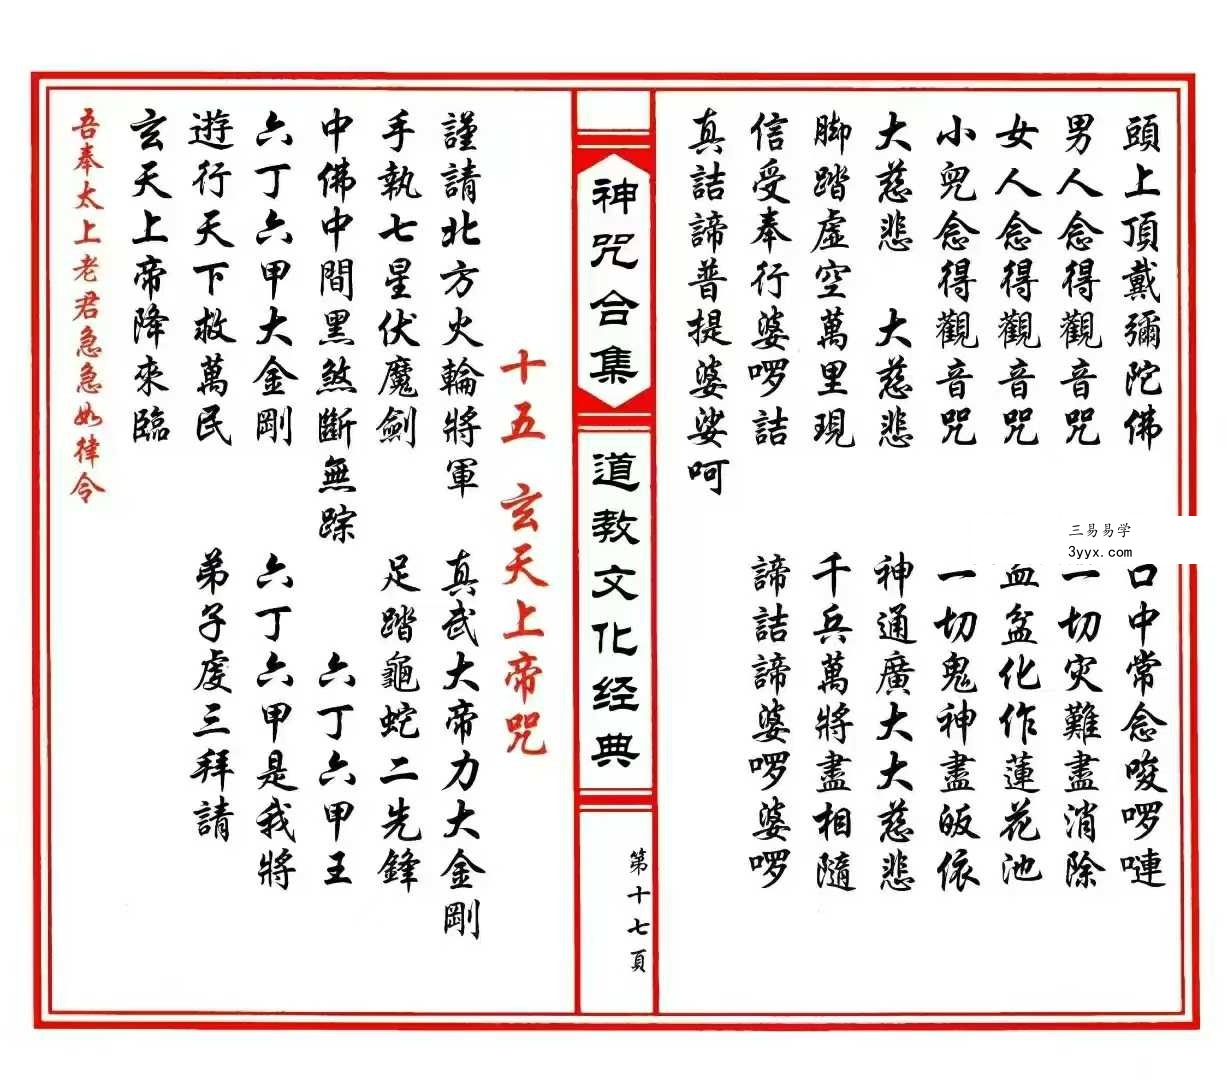 頭上頂戴彌陀佛 口中常念唆啰嗹
男人念得觀音咒 一切灾難盡消除
女人念得觀音咒 血盆化作蓮花池
小兒念得觀音咒 一切鬼神盡皈依
大慈悲 大慈悲 神通廣大大慈悲
脚踏虛空萬里現 千兵萬將盡相隨
信受奉行婆啰詰 諦詰諦婆啰婆啰
真詰諦普提婆娑呵
神咒合集
道教文化经典
第十七頁
十五 玄天上帝咒
謹請北方火輪將軍 真武大帝力大金剛
手執七星伏魔劍 足踏龜蛇二先鋒
中佛中間黑煞斷無踪 六丁六甲王
六丁六甲大金剛 六丁六甲是我將
遊行天下救萬民 弟子虔三拜請
玄天上帝降來臨
吾奉太上老君急急如律令
三易易学
3yyx.com